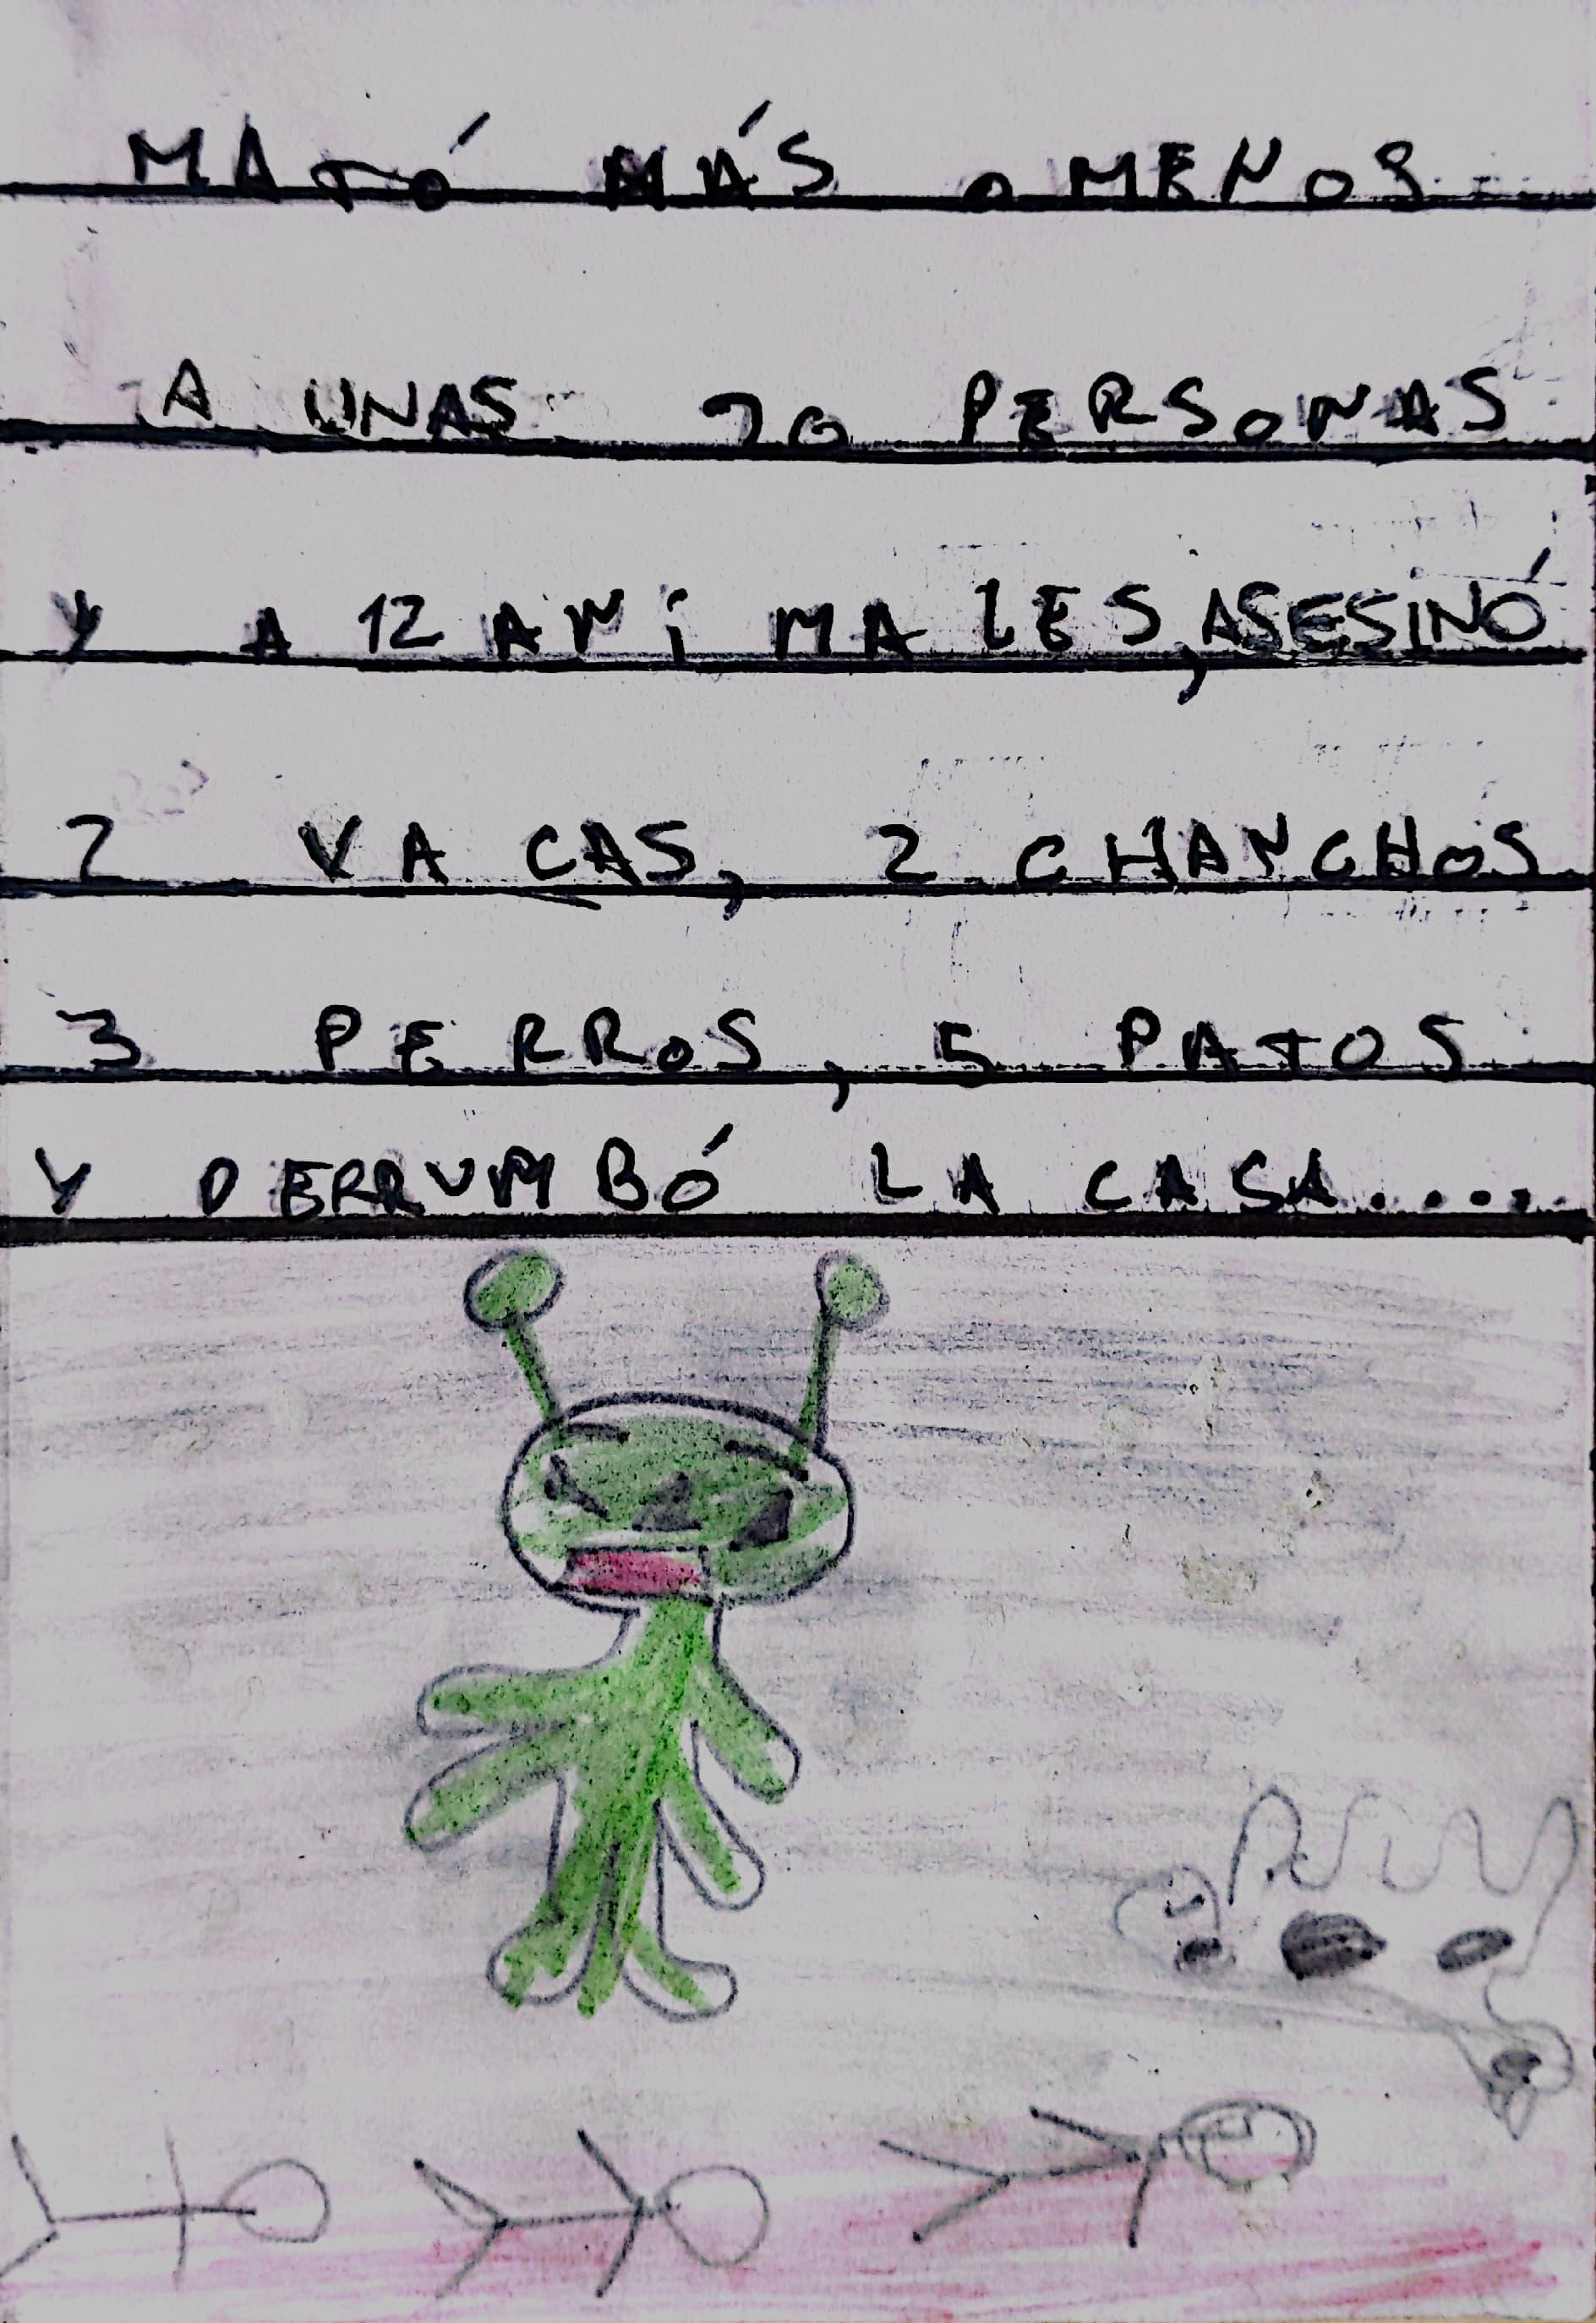 MATÓ MÁS O MENOS
A UNAS 20 PERSONAS
Y A 12 ANiMALES, ASESINÓ
2 VACAS, 2 CHANCHOS
3 PERROS, 5 PATOS
Y DERRUMBÓ LA CASA....